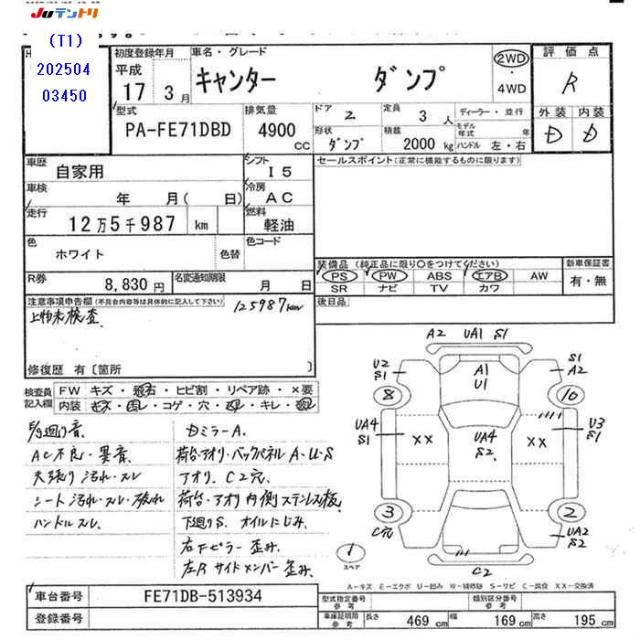 JUテントリ
(T1)
202504
03450
初度登録年月
平成
17 3月
車名・グレード
キャンター ダンプ
2WD
4WD
評価点
R
型式
PA-FE71DBD
排気量
4900
cc
ドア
2
定員
3人
形状
ダンプ
積載
2000 kg
ディーラー・並行
モデル年式 年
ハンドル 左・右
外装 内装
D D
車歴
自家用
シフト
I5
車検
年 月( 日)
冷房
AC
走行
12万5千987 km
燃料
軽油
色
ホワイト
色替
色コード
R券
8,830円
名変通知期限
月 日
セールスポイント(正常に機能するものに限ります)
装備品(純正品に限り○をつけてください)
PS PW ABS エアB AW
SR ナビ TV カワ
新車保証書
有・無
後日品
注意事項申告欄(不具合内容等は具体的に記入して下さい)
125987km
上物未検査
修復歴 有〔箇所
検査員記入欄
FW キズ・飛石・ヒビ割・リペア跡・×要
内装 キズ・汚レ・コゲ・穴・
・キレ・
AC不良・異音
天張り汚れ・スレ
シート汚れ・スレ・破れ
ハンドルスレ
Dミラー A.
荷台・アオリ・バックパネル A・U・S
アオリ. C2穴
荷台・アオリ内側 ステンレス板
下廻りS. オイルにじみ.
右Fピラー 歪み.
左R サイドメンバー 歪み.
A2 UA1 S1
U2
S1
A1
U1
S1
A2
8
10
UA4
S1
××
UA4
S2
××
U3
S1
3
C穴
2
UA2
S2
1
スペア
C2
A-キズ E-エクボ U-凹み W-補修跡 S-サビ C-腐食 XX-交換済
車台番号
FE71DB-513934
登録番号
型式指定番号
参考
類別区分番号
参考
車庫証明用
参考
長さ 469 cm
幅 169 cm
高さ 195 cm